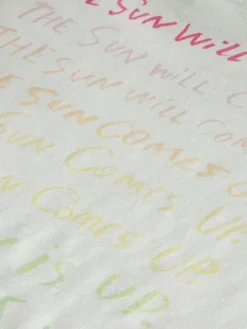 THE SUN WILL
THE SUN WILL C
THE SUN WILL COM
E SUN COMES U
SUN COMES UP.
N COMES UP.
IS UP.